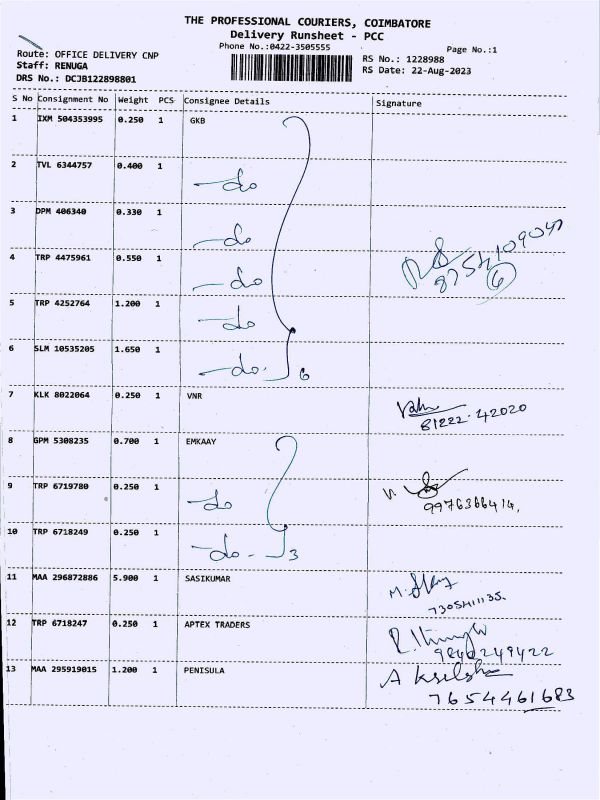 THE PROFESSIONAL COURIERS, COIMBATORE
Delivery Runsheet - PCC
Phone No.:0422-3505555
Page No.:1
Route: OFFICE DELIVERY CNP
RS No.: 1228988
Staff: RENUGA
RS Date: 22-Aug-2023
DRS No.: DCJB122898801
S No Consignment No Weight PCS Consignee Details Signature
1 IXM 504353995 0.250 1 GKB
2 TVL 6344757 0.400 1 -do
3 DPM 406340 0.330 1 -do
4 TRP 4475961 0.550 1 -do
6
5 TRP 4252764 1.200 1 -do
6 SLM 10535205 1.650 1 -do. 6
7 KLK 8022064 0.250 1 VNR
81222.42020
8 GPM 5308235 0.700 1 EMKAAY
9 TRP 6719780 0.250 1 -do
9976366414,
10 TRP 6718249 0.250 1 -do. 3
11 MAA 296872886 5.900 1 SASIKUMAR
12 TRP 6718247 0.250 1 APTEX TRADERS
13 MAA 295919015 1.200 1 PENISULA
7654461683